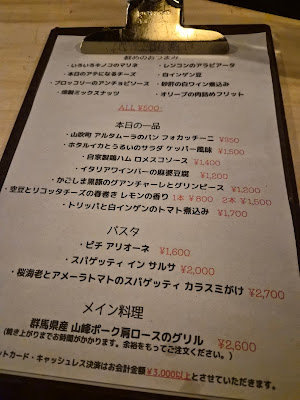 軽めのおつまみ
・いろいろキノコのマリネ ・レンコンのアラビアータ
・本日のアテになるチーズ ・白インゲン豆
・ブロッコリーのアンチョビソース ・砂肝の白ワイン煮込み
・燻製ミックスナッツ ・オリーブの肉詰めフリット
ALL ¥500-
本日の一品
・山吹町 アルタムーラのパン フォカッチーニ ¥350
・ホタルイカとうるいのサラダ ケッパー風味 ¥1,500
・自家製鶏ハム ロメスコソース ¥1,400
・イタリアワインバーの麻婆豆腐 ¥1,200
・かごしま黒豚のグアンチャーレとグリンピース ¥1,200
・空豆とリコッタチーズの春巻き レモンの香り 1本 ¥600 2本 ¥1,500
・トリッパと白インゲンのトマト煮込み ¥1,700
パスタ
・ピチ アリオーネ ¥1,600
・スパゲッティ イン サルサ ¥2,000
・桜海老とアメーラトマトのスパゲッティ カラスミがけ ¥2,700
メイン料理
群馬県産 山峰ポーク肩ロースのグリル ¥2,600
(焼き上がりまでお時間がかかります。余裕をもってご注文ください。)
ットカード・キャッシュレス決済はお会計金額¥3,000以上とさせていただきます。